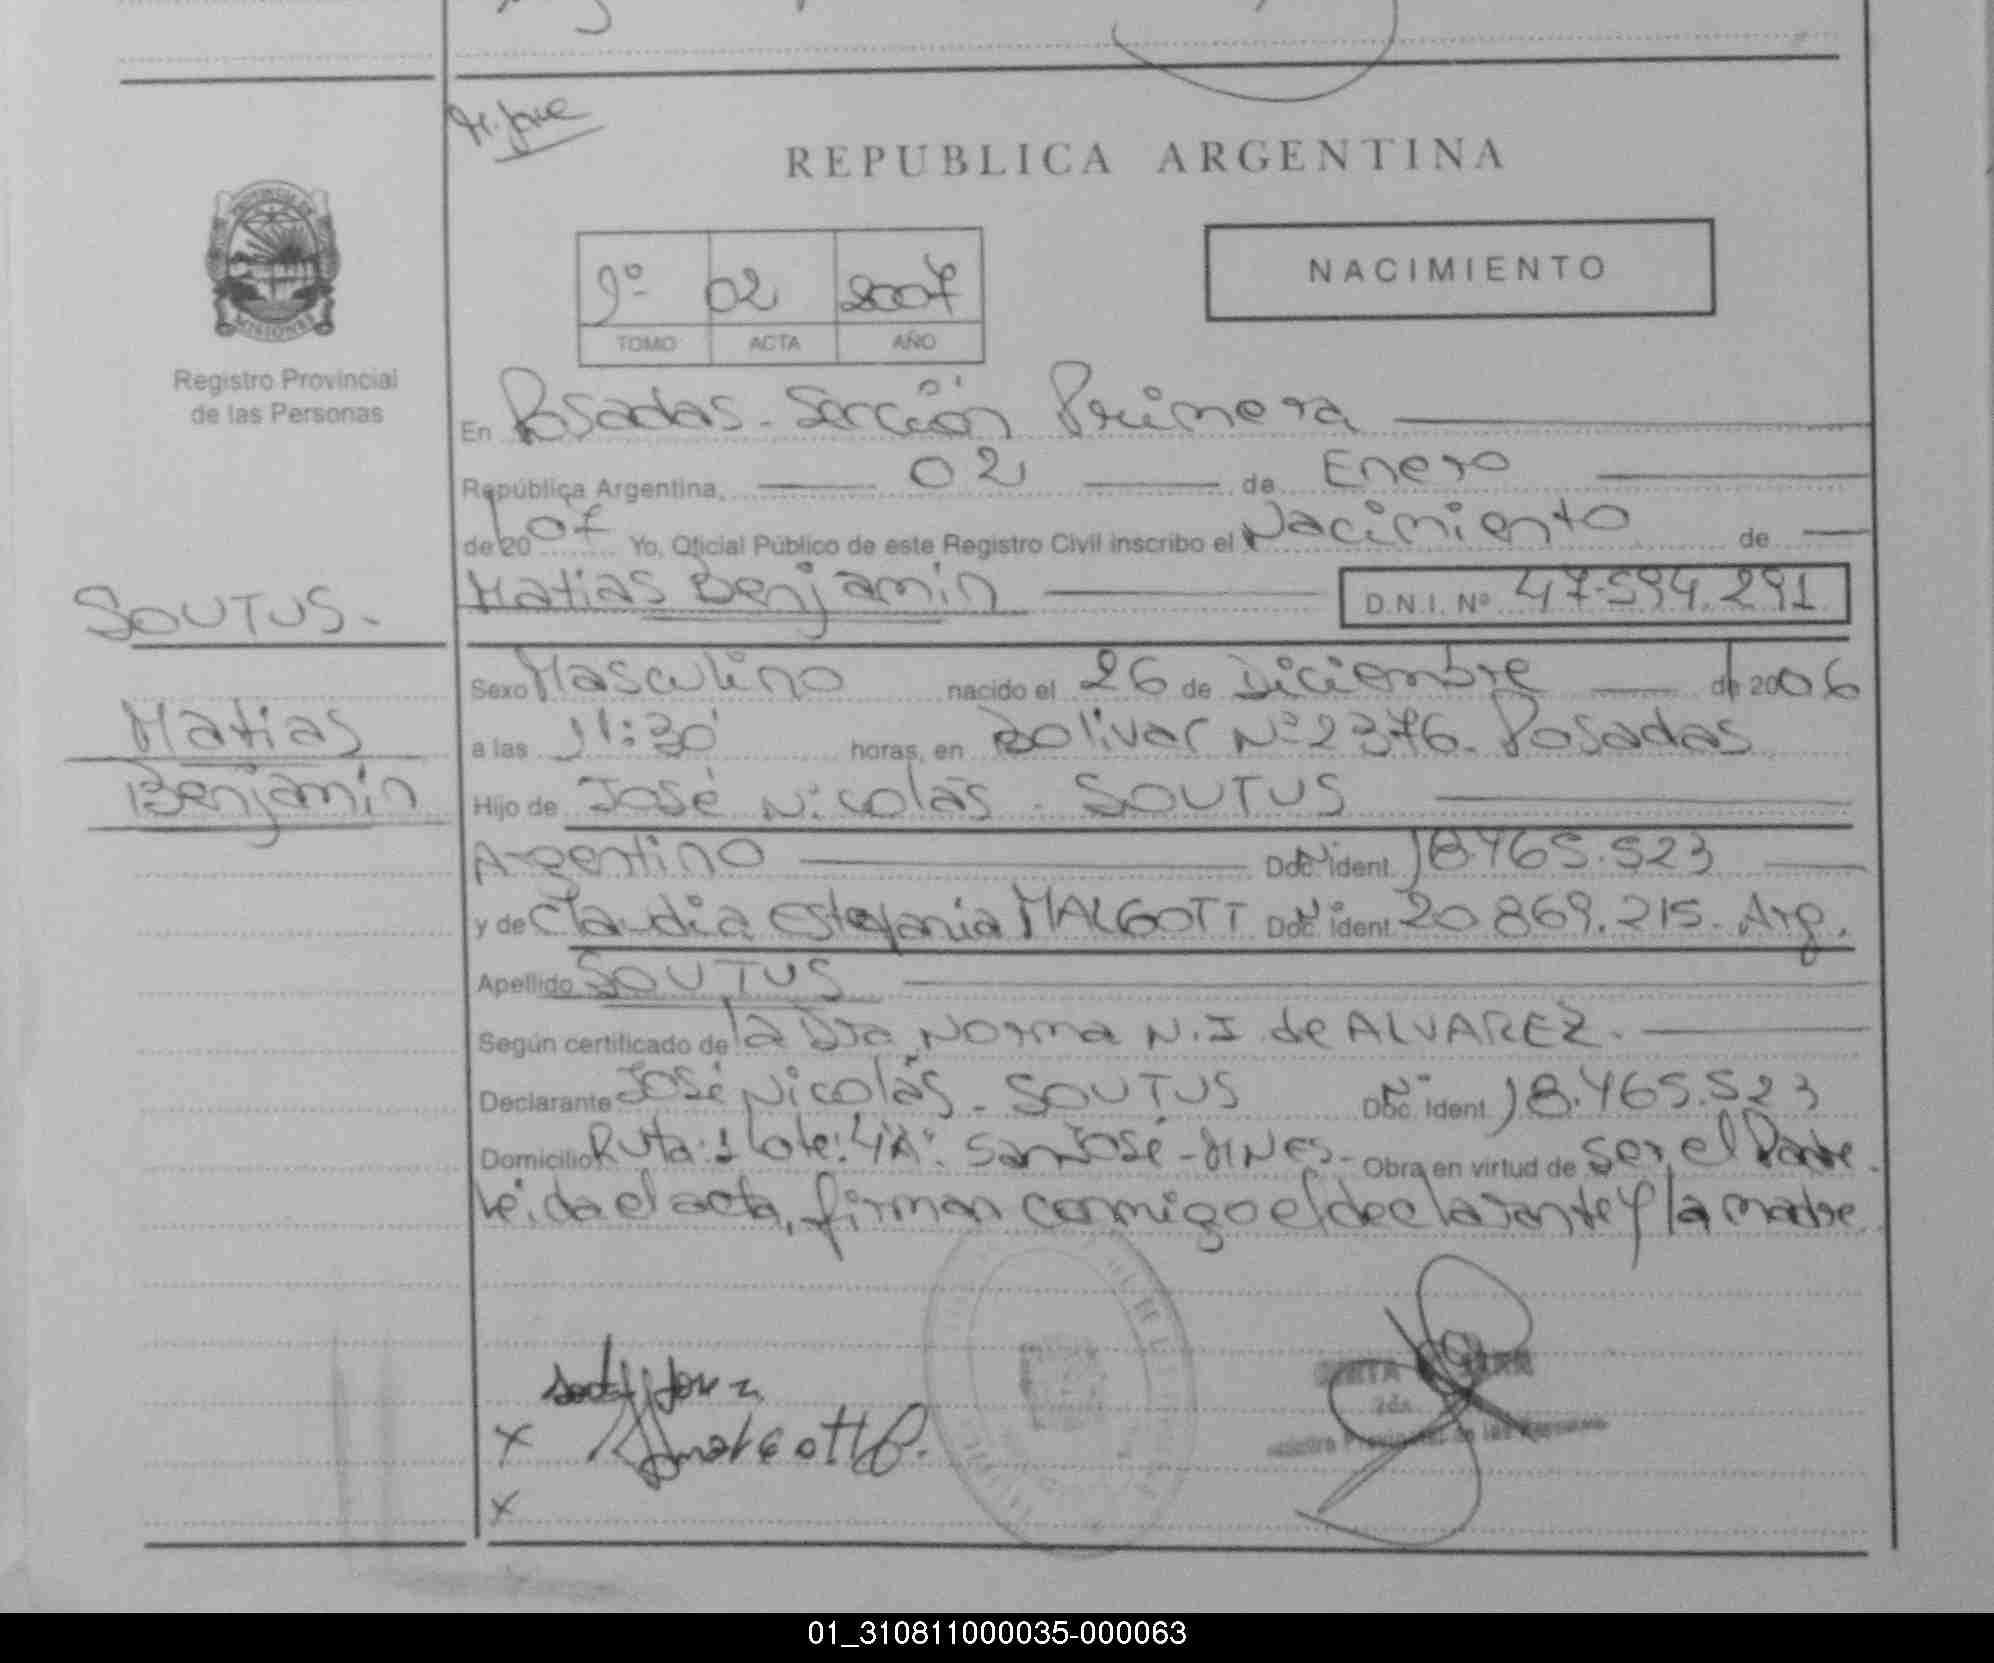 REPUBLICA ARGENTINA
PROVINCIA DE
MISIONES
Registro Provincial
de las Personas
9º 02 2007
TOMO ACTA AÑO
NACIMIENTO
En Posadas - Sección Primera
República Argentina, 02 de Enero
de 2007 Yo, Oficial Público de este Registro Civil inscribo el Nacimiento de
Matias Benjamin D.N.I. Nº 47.594.291
SOUTUS.-
Matias
Benjamin
Sexo Masculino nacido el 26 de Diciembre de 2006
a las 11:30 horas, en Bolivar Nº 2376. Posadas
Hijo de José Nicolás SOUTUS
Argentino Doc. ident. 18.465.523
y de Claudia Estefania MALGOTT Doc. ident. 20.869.215. Arg.
Apellido SOUTUS
Según certificado de la Dra Norma N. I. de ALVAREZ.
Declarante José Nicolás - SOUTUS Doc. Ident. 18.465.523
Domicilio Ruta: 1 Lote: 4 "A". San José - MNES - Obra en virtud de ser el Padre.
Leida el acta, firman conmigo el declarante y la madre
x
x
01_310811000035-000063